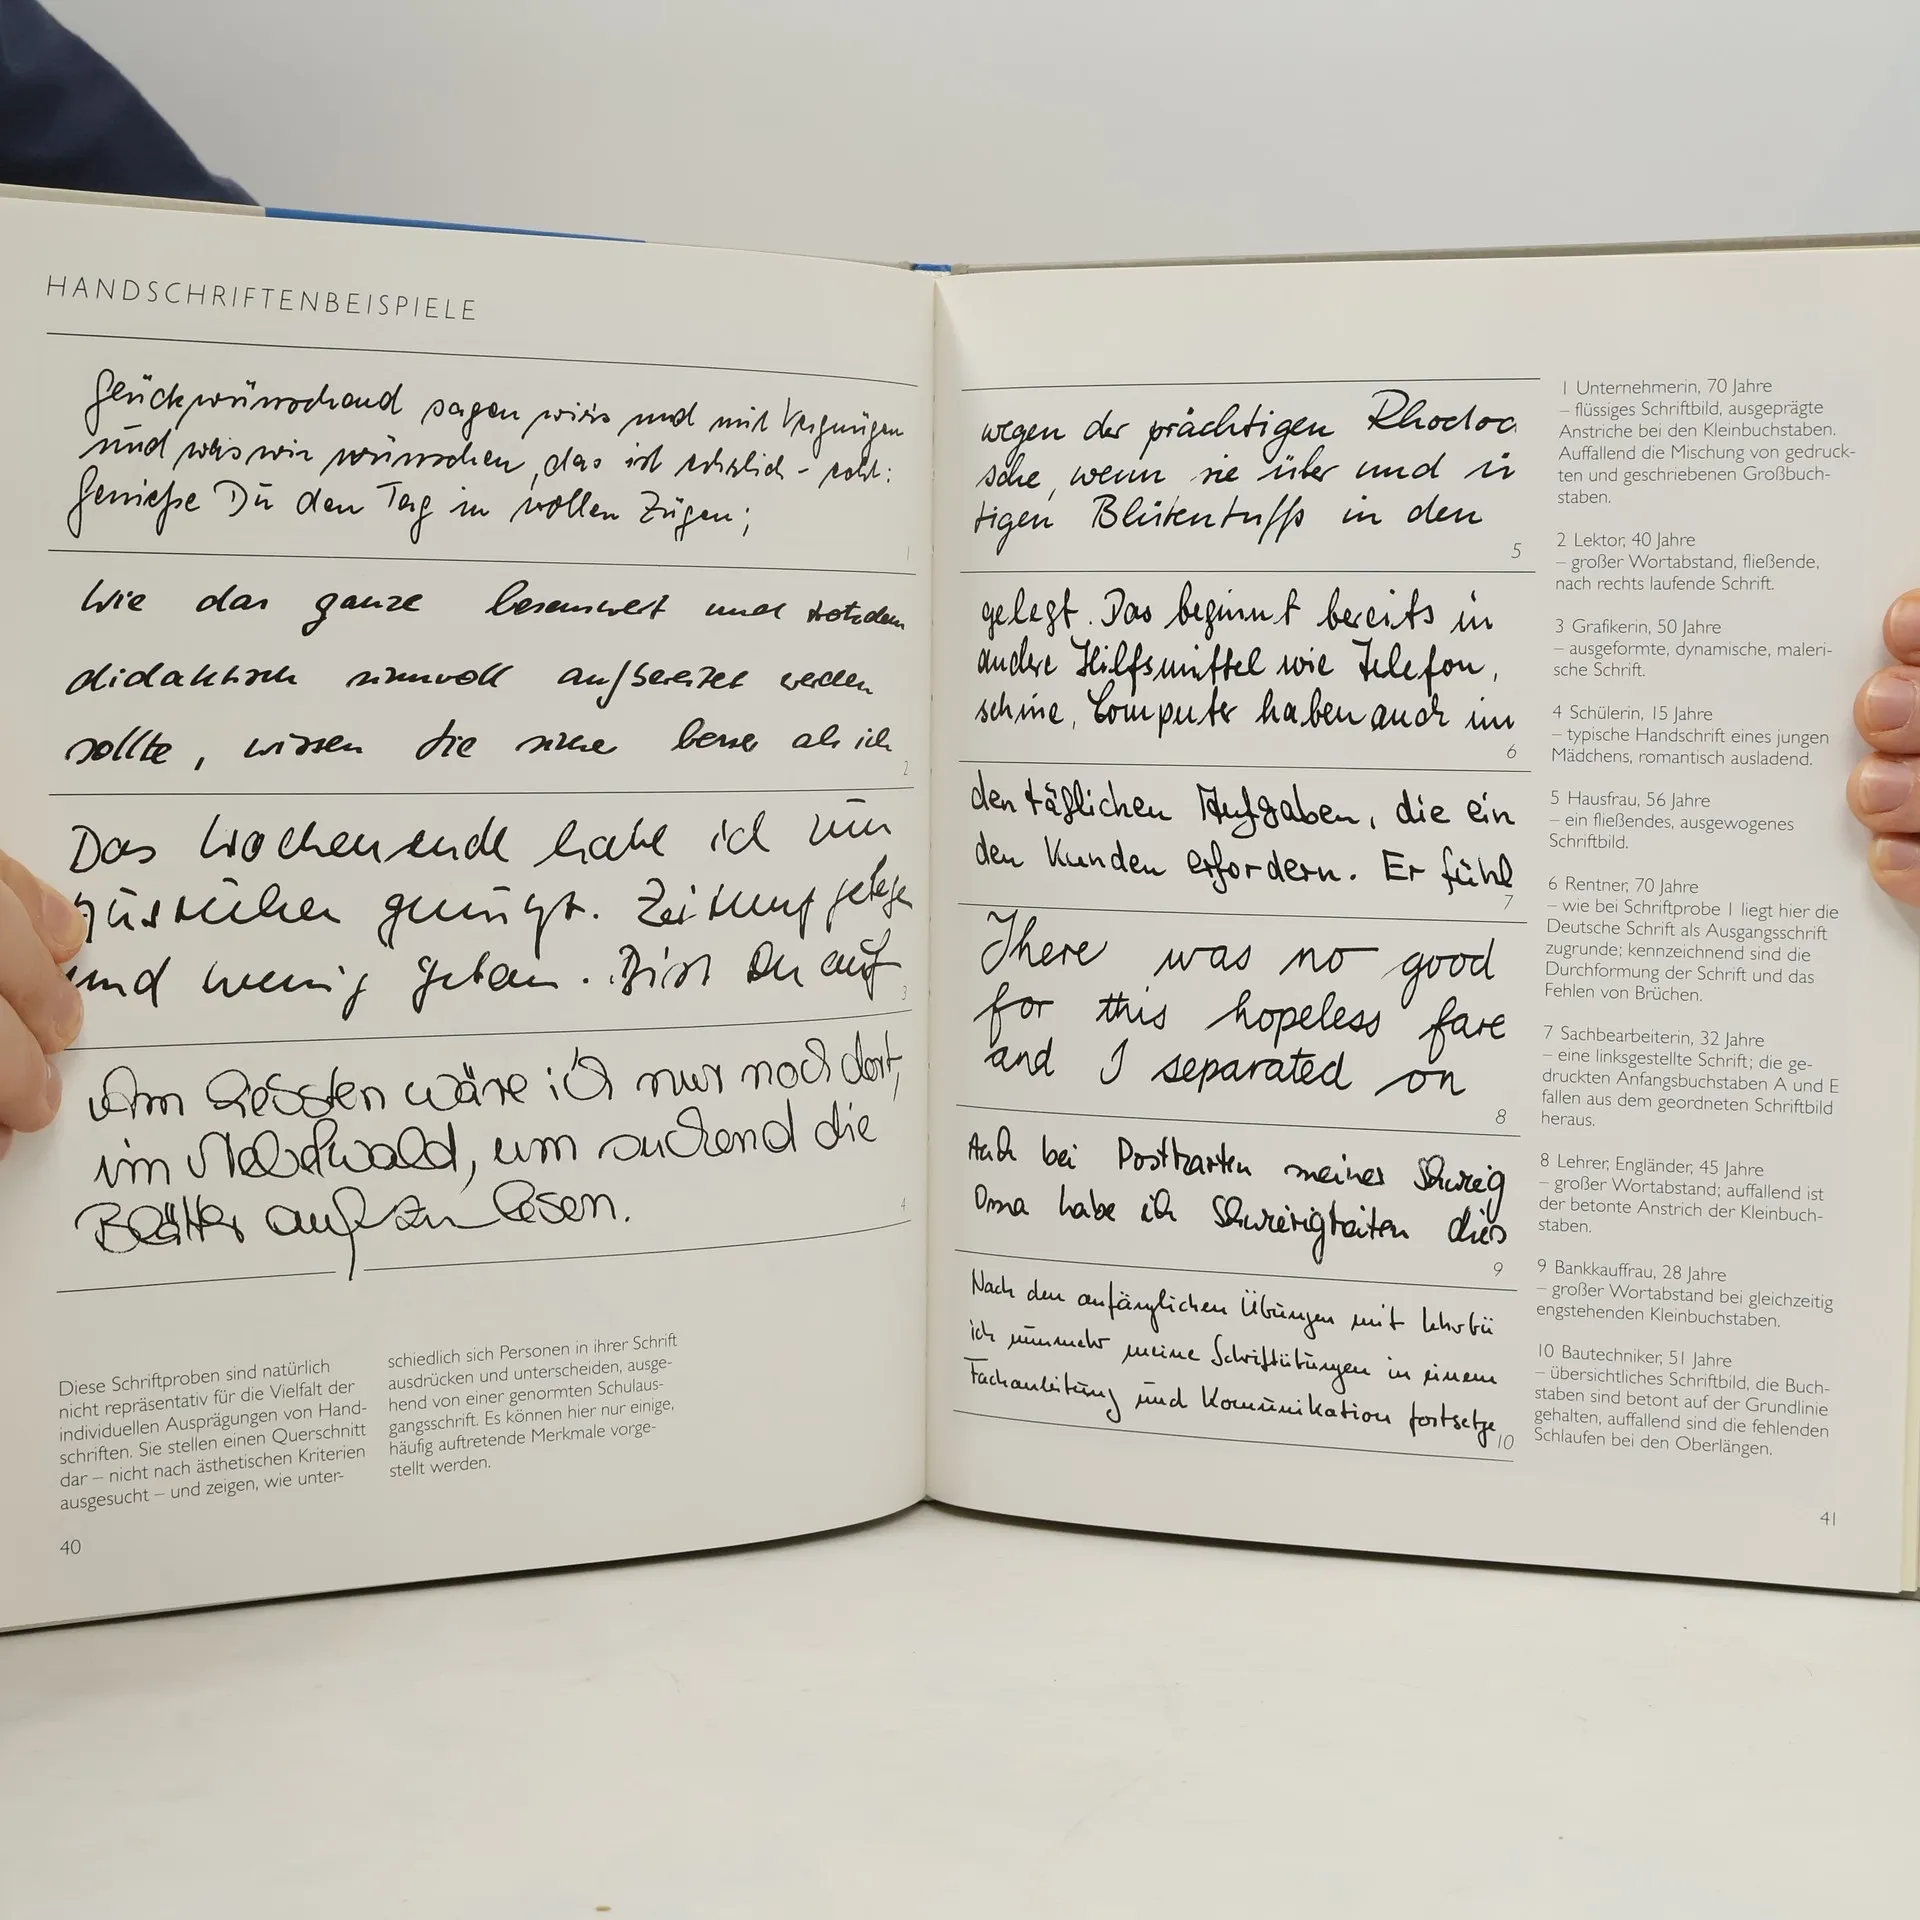 HANDSCHRIFTENBEISPIELE
Glückwünschend sagen wirs und mit Vergnügen
und was wir wünschen, das ist ehrlich - echt:
Genieße Du den Tag in vollen Zügen;
1
Wie das ganze lesenswert und trotzdem
didaktisch sinnvoll aufbereitet werden
sollte, wissen Sie sicher besser als ich
2
Das Wochenende habe ich zum
Ausruhen genützt. Zeitung gelesen
und wenig getan. Bist Du auf
3
Am liebsten wäre ich nur noch dort,
im Nebelwald, um suchend die
Blätter aufzulesen.
4
Diese Schriftproben sind natürlich
nicht repräsentativ für die Vielfalt der
individuellen Ausprägungen von Hand-
schriften. Sie stellen einen Querschnitt
dar – nicht nach ästhetischen Kriterien
ausgesucht – und zeigen, wie unter-
schiedlich sich Personen in ihrer Schrift
ausdrücken und unterscheiden, ausge-
hend von einer genormten Schulaus-
gangsschrift. Es können hier nur einige,
häufig auftretende Merkmale vorge-
stellt werden.
40
wegen der prächtigen Rhodod
sche, wenn sie über und ü
tigen Blütentuffs in den
5
gelegt. Das beginnt bereits in
andere Hilfsmittel wie Telefon,
schine, Computer haben auch im
6
den täglichen Aufgaben, die ein
den Kunden erfordern. Er fühl
7
There was no good
for this hopeless fare
and I separated on
8
Auch bei Postkarten meiner Schwieg
Oma habe ich Schwierigkeiten dies
9
Nach den anfänglichen Übungen mit Lehrbü
ich nunmehr meine Schriftübungen in einem
Fachanleitung und Kommunikation fortsetze
10
1 Unternehmerin, 70 Jahre
– flüssiges Schriftbild, ausgeprägte
Anstriche bei den Kleinbuchstaben.
Auffallend die Mischung von gedruck-
ten und geschriebenen Großbuch-
staben.
2 Lektor, 40 Jahre
– großer Wortabstand, fließende,
nach rechts laufende Schrift.
3 Grafikerin, 50 Jahre
– ausgeformte, dynamische, maleri-
sche Schrift.
4 Schülerin, 15 Jahre
– typische Handschrift eines jungen
Mädchens, romantisch ausladend.
5 Hausfrau, 56 Jahre
– ein fließendes, ausgewogenes
Schriftbild.
6 Rentner, 70 Jahre
– wie bei Schriftprobe 1 liegt hier die
Deutsche Schrift als Ausgangsschrift
zugrunde; kennzeichnend sind die
Durchformung der Schrift und das
Fehlen von Brüchen.
7 Sachbearbeiterin, 32 Jahre
– eine linksgestellte Schrift; die ge-
druckten Anfangsbuchstaben A und E
fallen aus dem geordneten Schriftbild
heraus.
8 Lehrer, Engländer, 45 Jahre
– großer Wortabstand; auffallend ist
der betonte Anstrich der Kleinbuch-
staben.
9 Bankkauffrau, 28 Jahre
– großer Wortabstand bei gleichzeitig
engstehenden Kleinbuchstaben.
10 Bautechniker, 51 Jahre
– übersichtliches Schriftbild, die Buch-
staben sind betont auf der Grundlinie
gehalten, auffallend sind die fehlenden
Schlaufen bei den Oberlängen.
41